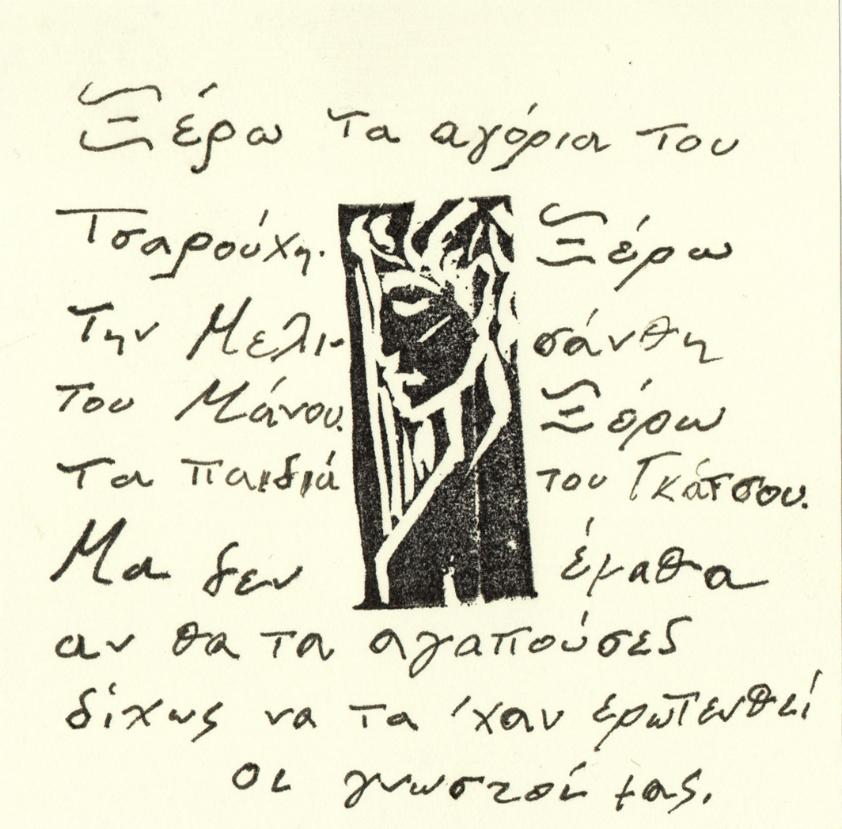 Ξέρω τα αγόρια του
Τσαρούχη. Ξέρω
την Μελι- σάνθη
του Μάνου. Ξέρω
τα παιδιά του Γκάτσου.
Μα δεν έμαθα
αν θα τα αγαπούσες
δίχως να τα 'χαν ερωτευθεί
οι γνωστοί μας.